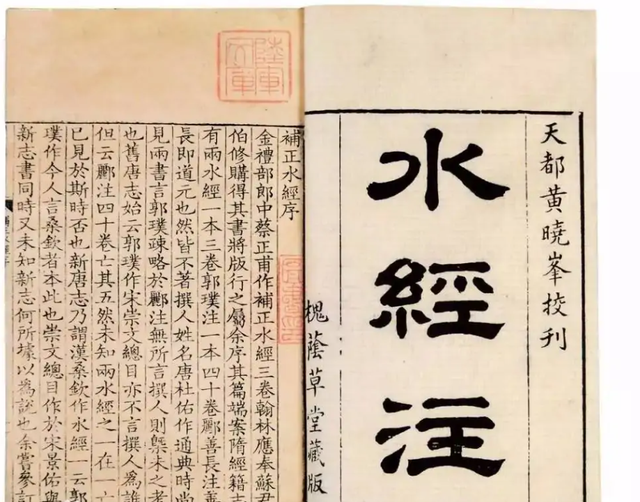 天都黃曉峯挍刊
水經注
槐蔭草堂藏版
陸軍
文庫
補正水經序
金禮部郎中蔡正甫作補正水經三卷翰林應奉蘇君
伯修購得其書將版行之屬余序其篇端案隋經籍志
有兩水經一本三卷郭璞注一本四十卷酈善長注善
長即道元也然皆不著撰人姓名唐杜佑作通典時尚
見兩書言郭璞疎略於酈注無所言撰人則槩未之考
也舊唐志始云郭璞作宋崇文總目亦不言撰人爲誰
但云酈注四十卷亡其五然未知兩水經之一在一亡
已見於斯時否也新唐志乃謂漢桑欽作水經 一云郭
璞作今人言桑欽者本此也崇文總目作於宋景佑與
新志書同時又未知新志何所據以爲說也余嘗參訂